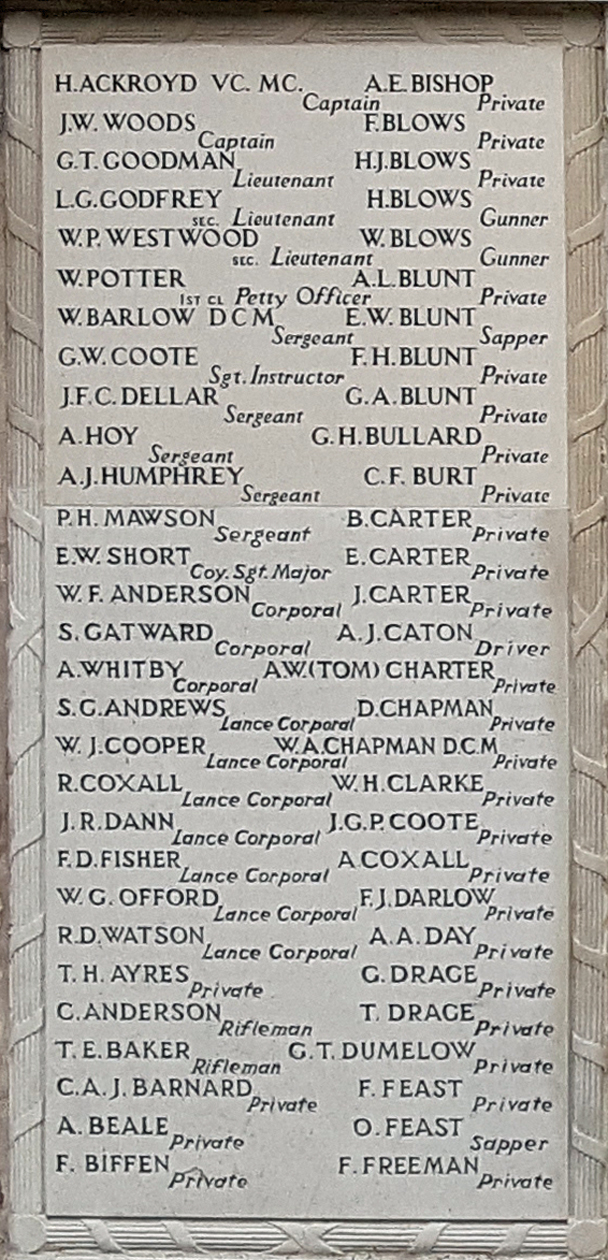 H.ACKROYD VC. MC. Captain
J.W. WOODS Captain
G.T. GOODMAN Lieutenant
L.G.GODFREY SEC. Lieutenant
W.P. WESTWOOD SEC. Lieutenant
W.POTTER 1ST CL Petty Officer
W.BARLOW D C M Sergeant
G.W. COOTE Sgt. Instructor
J.F.C. DELLAR Sergeant
A.HOY Sergeant
A.J.HUMPHREY Sergeant
P.H. MAWSON Sergeant
E.W. SHORT Coy. Sgt. Major
W.F. ANDERSON Corporal
S. GATWARD Corporal
A.WHITBY Corporal
S.G.ANDREWS Lance Corporal
W. J.COOPER Lance Corporal
R.COXALL Lance Corporal
J.R.DANN Lance Corporal
F.D.FISHER Lance Corporal
W.G. OFFORD Lance Corporal
R.D.WATSON Lance Corporal
T. H. AYRES Private
C.ANDERSON Rifleman
T. E.BAKER Rifleman
C.A.J. BARNARD Private
A. BEALE Private
F. BIFFEN Private
A.E.BISHOP Private
F.BLOWS Private
H.J.BLOWS Private
H.BLOWS Gunner
W. BLOWS Gunner
A.L.BLUNT Private
E.W. BLUNT Sapper
F.H. BLUNT Private
G.A.BLUNT Private
G.H.BULLARD Private
C.F. BURT Private
B.CARTER Private
E.CARTER Private
J.CARTER Private
A.J.CATON Driver
A.W.(TOM) CHARTER Private
D.CHAPMAN Private
W.A.CHAPMAN D.C.M Private
W.H.CLARKE Private
J.G.P.COOTE Private
A COXALL Private
F.J.DARLOW Private
A.A.DAY Private
G.DRAGE Private
T. DRAGE Private
G.T. DUMELOW Private
F. FEAST Private
O. FEAST Sapper
F.FREEMAN Private